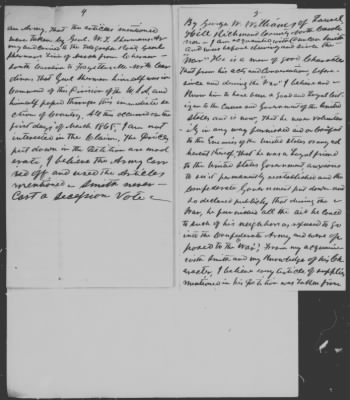 4
an Army, that the articles mentioned
were taken by Genl W. T. Shermans Ar-
my and carried to the
Shermans line of march from Cheraw
North Carolina to Fayetteville North Ca
lina; that Genl Sherman himself was in
Command of this Division of the U.S.A, and
himself passed through this immediate se
ction of Country. All this occurred in the
first days of March 1865. I am not
interested in the Claim, The Prices
put down in the Petition are mod
erate, I believe the Army car
ried off and used the Articles
mentioned. Smith never
Cast a secession Vote
3
By George W. Williams of Laurel
Hill Richmond County North Caroli
na. I am acquainted with Smith
and was before during and since the
War. He is a man of good Character
that from his acts and conversations before
since and during the War I believe and
know him to have been a good and loyal Citi
zen to the Cause and Government of the United
States and is now, that he never voluntar
ily in any way furnished aid or Comfort
to the Enemies of the United States or any ad
herent thereof, that he was a loyal friend
to the United States Government anxious
to see it permanently reestablished and the
Confederate Government put down and
so declared publicly that during the
War, he persuaded all the act he could
to such of his neighbors as opposed to go
into the Confederate Army and were op
posed to the War. From my acquaintance
with Smith and my Knowledge of his Ch
aracter, I believe every article of supplies
mentioned in his petition was taken from